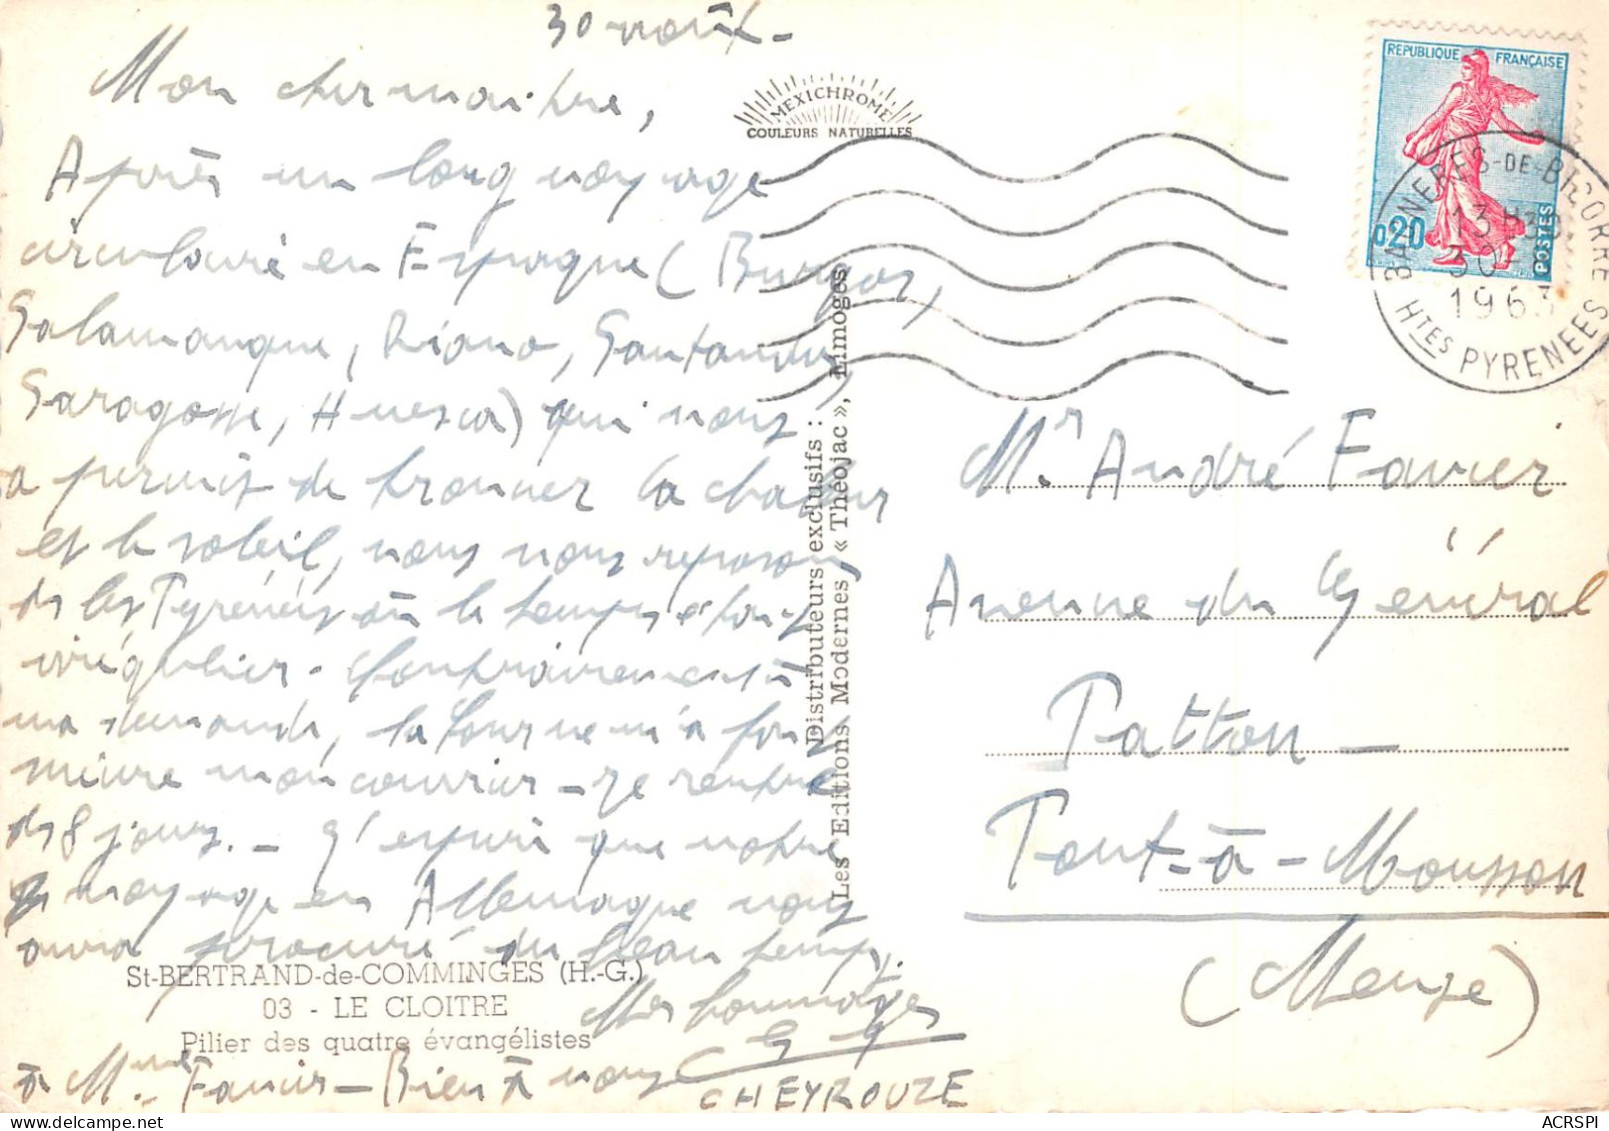 30 août -
Mon cher maitre,
Après un long voyage
circulaire en Espagne (Burgos,
Salamanque, Riano, Santander,
Saragosse, Huesca) qui nous
a permis de trouver la chaleur
et le soleil, nous nous reposons
ds les Pyrénées où le temps est
irrégulier - Contrairement à
ma demande, la Poste ne m'a pas
mon courrier - Je rentre
ds 8 jours. - J'espère que votre
voyage en Allemagne vous
aura procuré du beau temps.
Mes hommages
à Mme Favier - Bien à vous
CHEYROUZE
St-BERTRAND-de-COMMINGES (H.-G.)
03 - LE CLOITRE
Pilier des quatre évangélistes
MEXICHROME
COULEURS NATURELLES
Distributeurs exclusifs :
Les Editions Modernes « Théojac », Limoges
REPUBLIQUE FRANÇAISE
0,20
POSTES
BAGNERES-DE-BIGORRE
13 H30
30
1963
HTES PYRENEES
Mr. André Favier
Avenue du Général
Patton -
Pont-à-Mousson
(Meuse)
ACRSPI